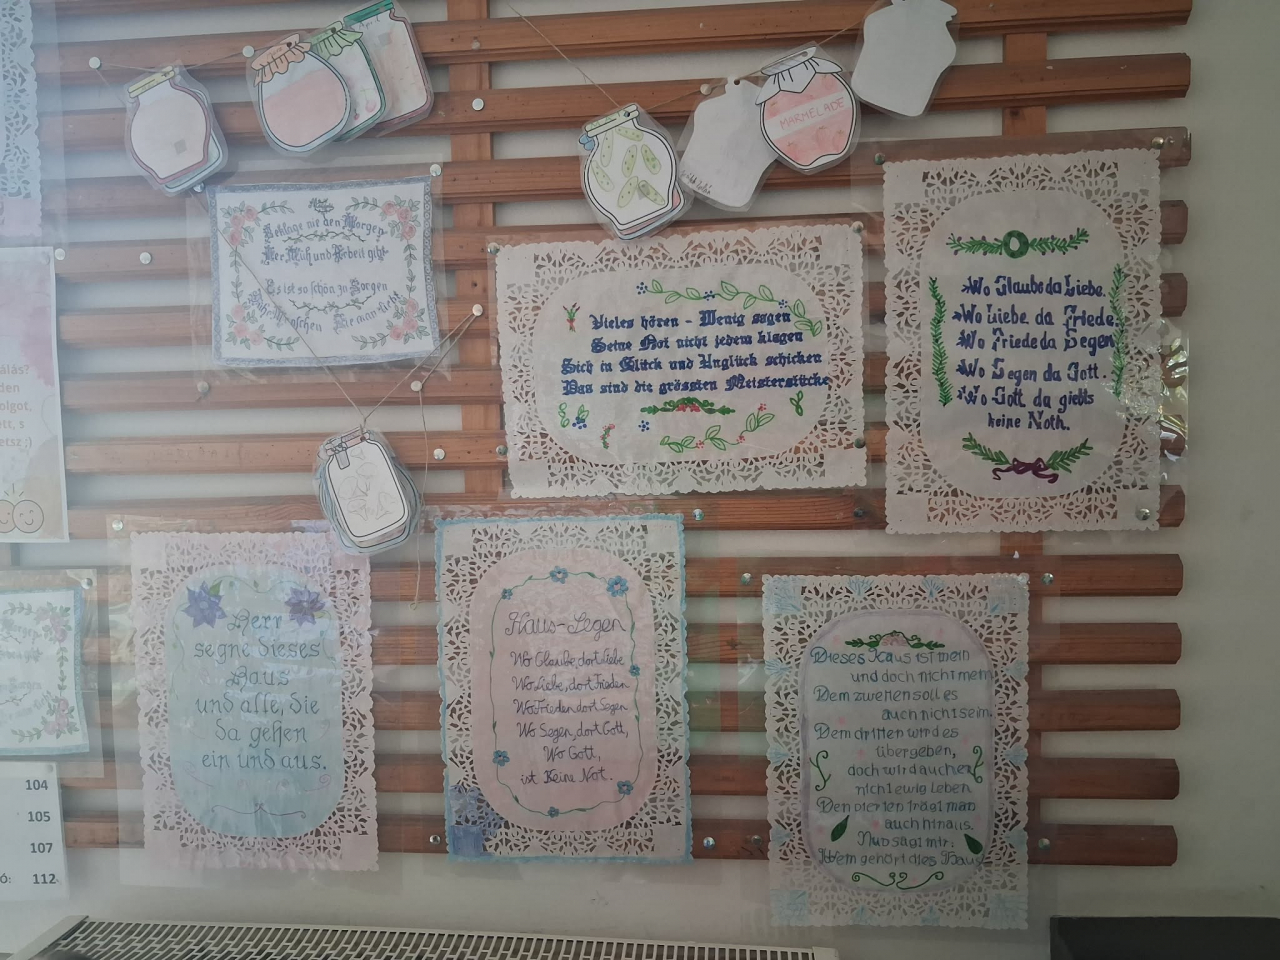 April
MARMELADE
Beklage nie den Morgen
Der Müh und Arbeit gibt
Es ist so schön zu Sorgen
Für Menschen Die man liebt
Vieles hören - Wenig sagen
Seine Not nicht jedem klagen
Sich in Glück und Unglück schicken
Das sind die grössten Meisterstücke
Wo Glaube da Liebe.
Wo Liebe da Friede.
Wo Friede da Segen
Wo Segen da Gott.
Wo Gott da giebts
keine Noth.
álás?
den
olgot,
ett, s
etsz ;)
Herr
segne dieses
Haus
und alle, die
da gehen
ein und aus.
Haus-Segen
Wo Glaube, dort Liebe
Wo Liebe, dort Frieden
Wo Frieden dort Segen
Wo Segen, dort Gott,
Wo Gott,
ist Keine Not.
Dieses Haus ist mein
und doch nicht mein
Dem zweiten soll es
auch nicht sein.
Dem dritten wird es
übergeben,
doch wird auch er
nicht ewig leben
Den vierten trägt man
auch hinaus.
Nun sagt mir:
Wem gehört dies Haus
104
105
107
Ó: 112